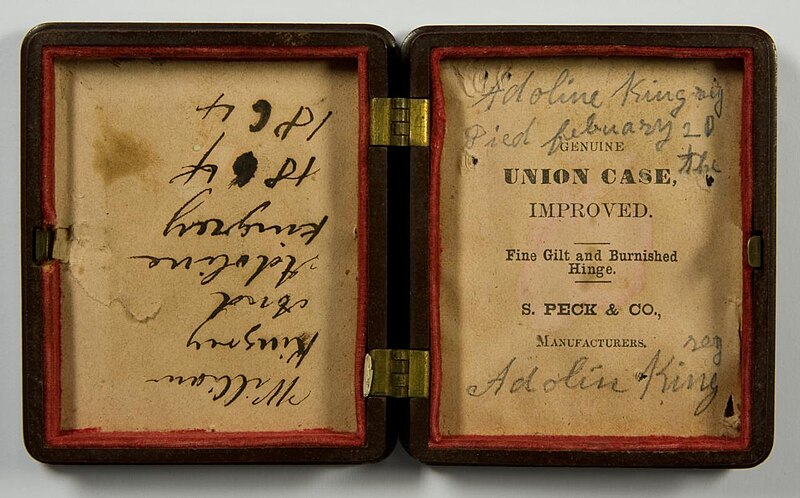 William
Kingrey
And
Adoline
Kingrey
1864
1864
Adoline Kingrey
Died febuary 20
the
GENUINE
UNION CASE,
IMPROVED.
Fine Gilt and Burnished
Hinge.
S. PECK & CO.,
MANUFACTURERS.
rey
Adolin King